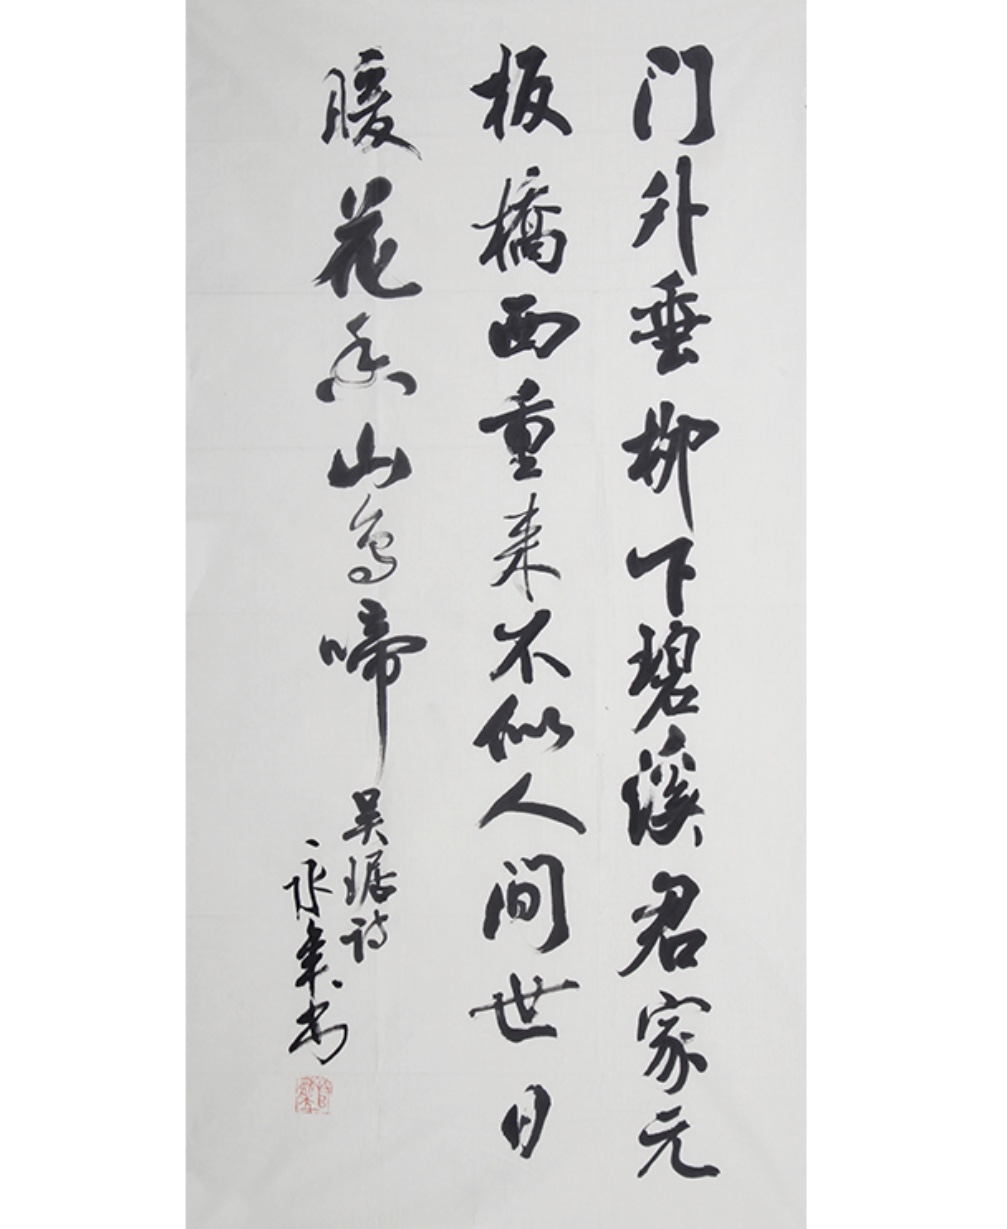 门外垂柳下碧溪君家元
板橋西重来不似人间世日
暖花香山鸟啼
吴琚诗
永年书